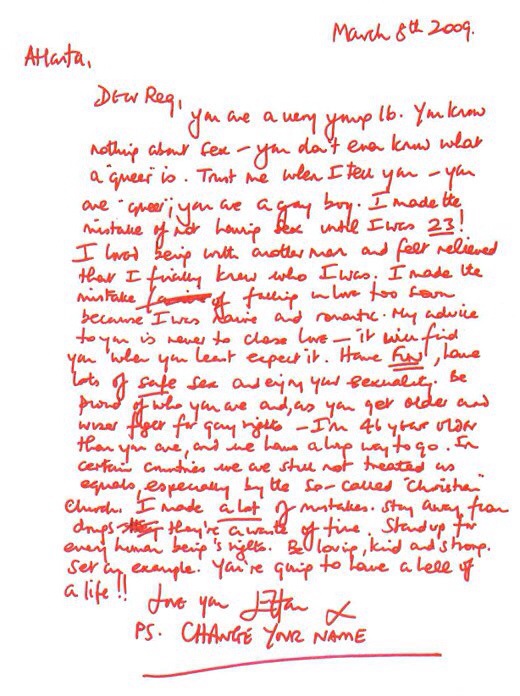 March 8th 2009.
Atlanta,
Dear Reg,
you are a very young 16. You know
nothing about sex – you don't even know what
a 'queer' is. Trust me when I tell you – you
are 'queer', you are a gay boy. I made the
mistake of not having sex until I was 23!
I loved being with another man and felt relieved
that I finally knew who I was. I made the
mistake of falling in love too soon
because I was naive and romantic. My advice
to you is never to chase love – it will find
you when you least expect it. Have FUN, have
lots of safe sex and enjoy your sexuality. Be
proud of who you are and, as you get older and
wiser fight for gay rights – I'm 46 years older
than you are, and we have a long way to go. In
certain countries we are still not treated as
equals, especially by the so-called 'Christian'
Church. I made a lot of mistakes. Stay away from
drugs they're a waste of time. Stand up for
every human being's rights. Be loving, kind and strong.
Set an example. You're going to have a hell of
a life!!
Love you Elton X
PS. CHANGE YOUR NAME